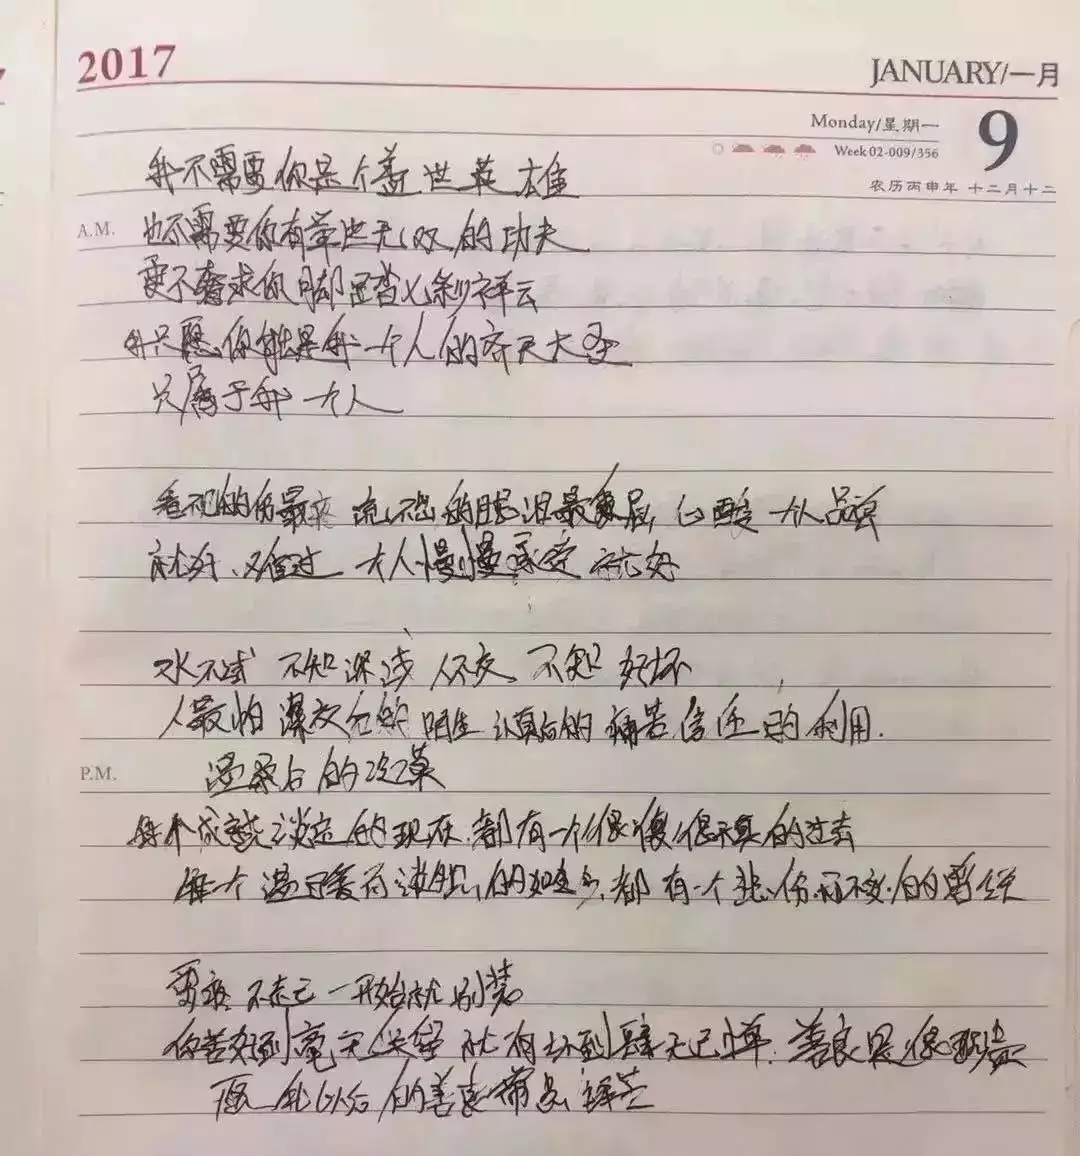 2017
JANUARY/一月
Monday/星期一
9
Week 02-009/356
农历丙申年 十二月十二
我不需要你是个盖世英雄
A.M.
也不需要你有举世无双的功夫
更不奢求你脚踏七彩祥云
我只愿你能是我一个人的齐天大圣
只属于我一个人
看不见的伤最疼 流不出的眼泪最 心酸一个人品尝
就好、难过一个人慢慢承受就好
水不试 不知深浅 人不交 不知好坏
人最怕深交后的陌生 认真后的痛苦 信任后的利用.
P.M.
温柔后的冷漠
每个成熟淡定的现在 都有一个很傻很天真的过去
每一个温暖而淡的如今,都有一个悲伤而不安的曾经
一开始就别装
你若好到毫无保留 就有坏到肆无忌惮. 善良是很珍贵
愿我以后的善良带点锋芒